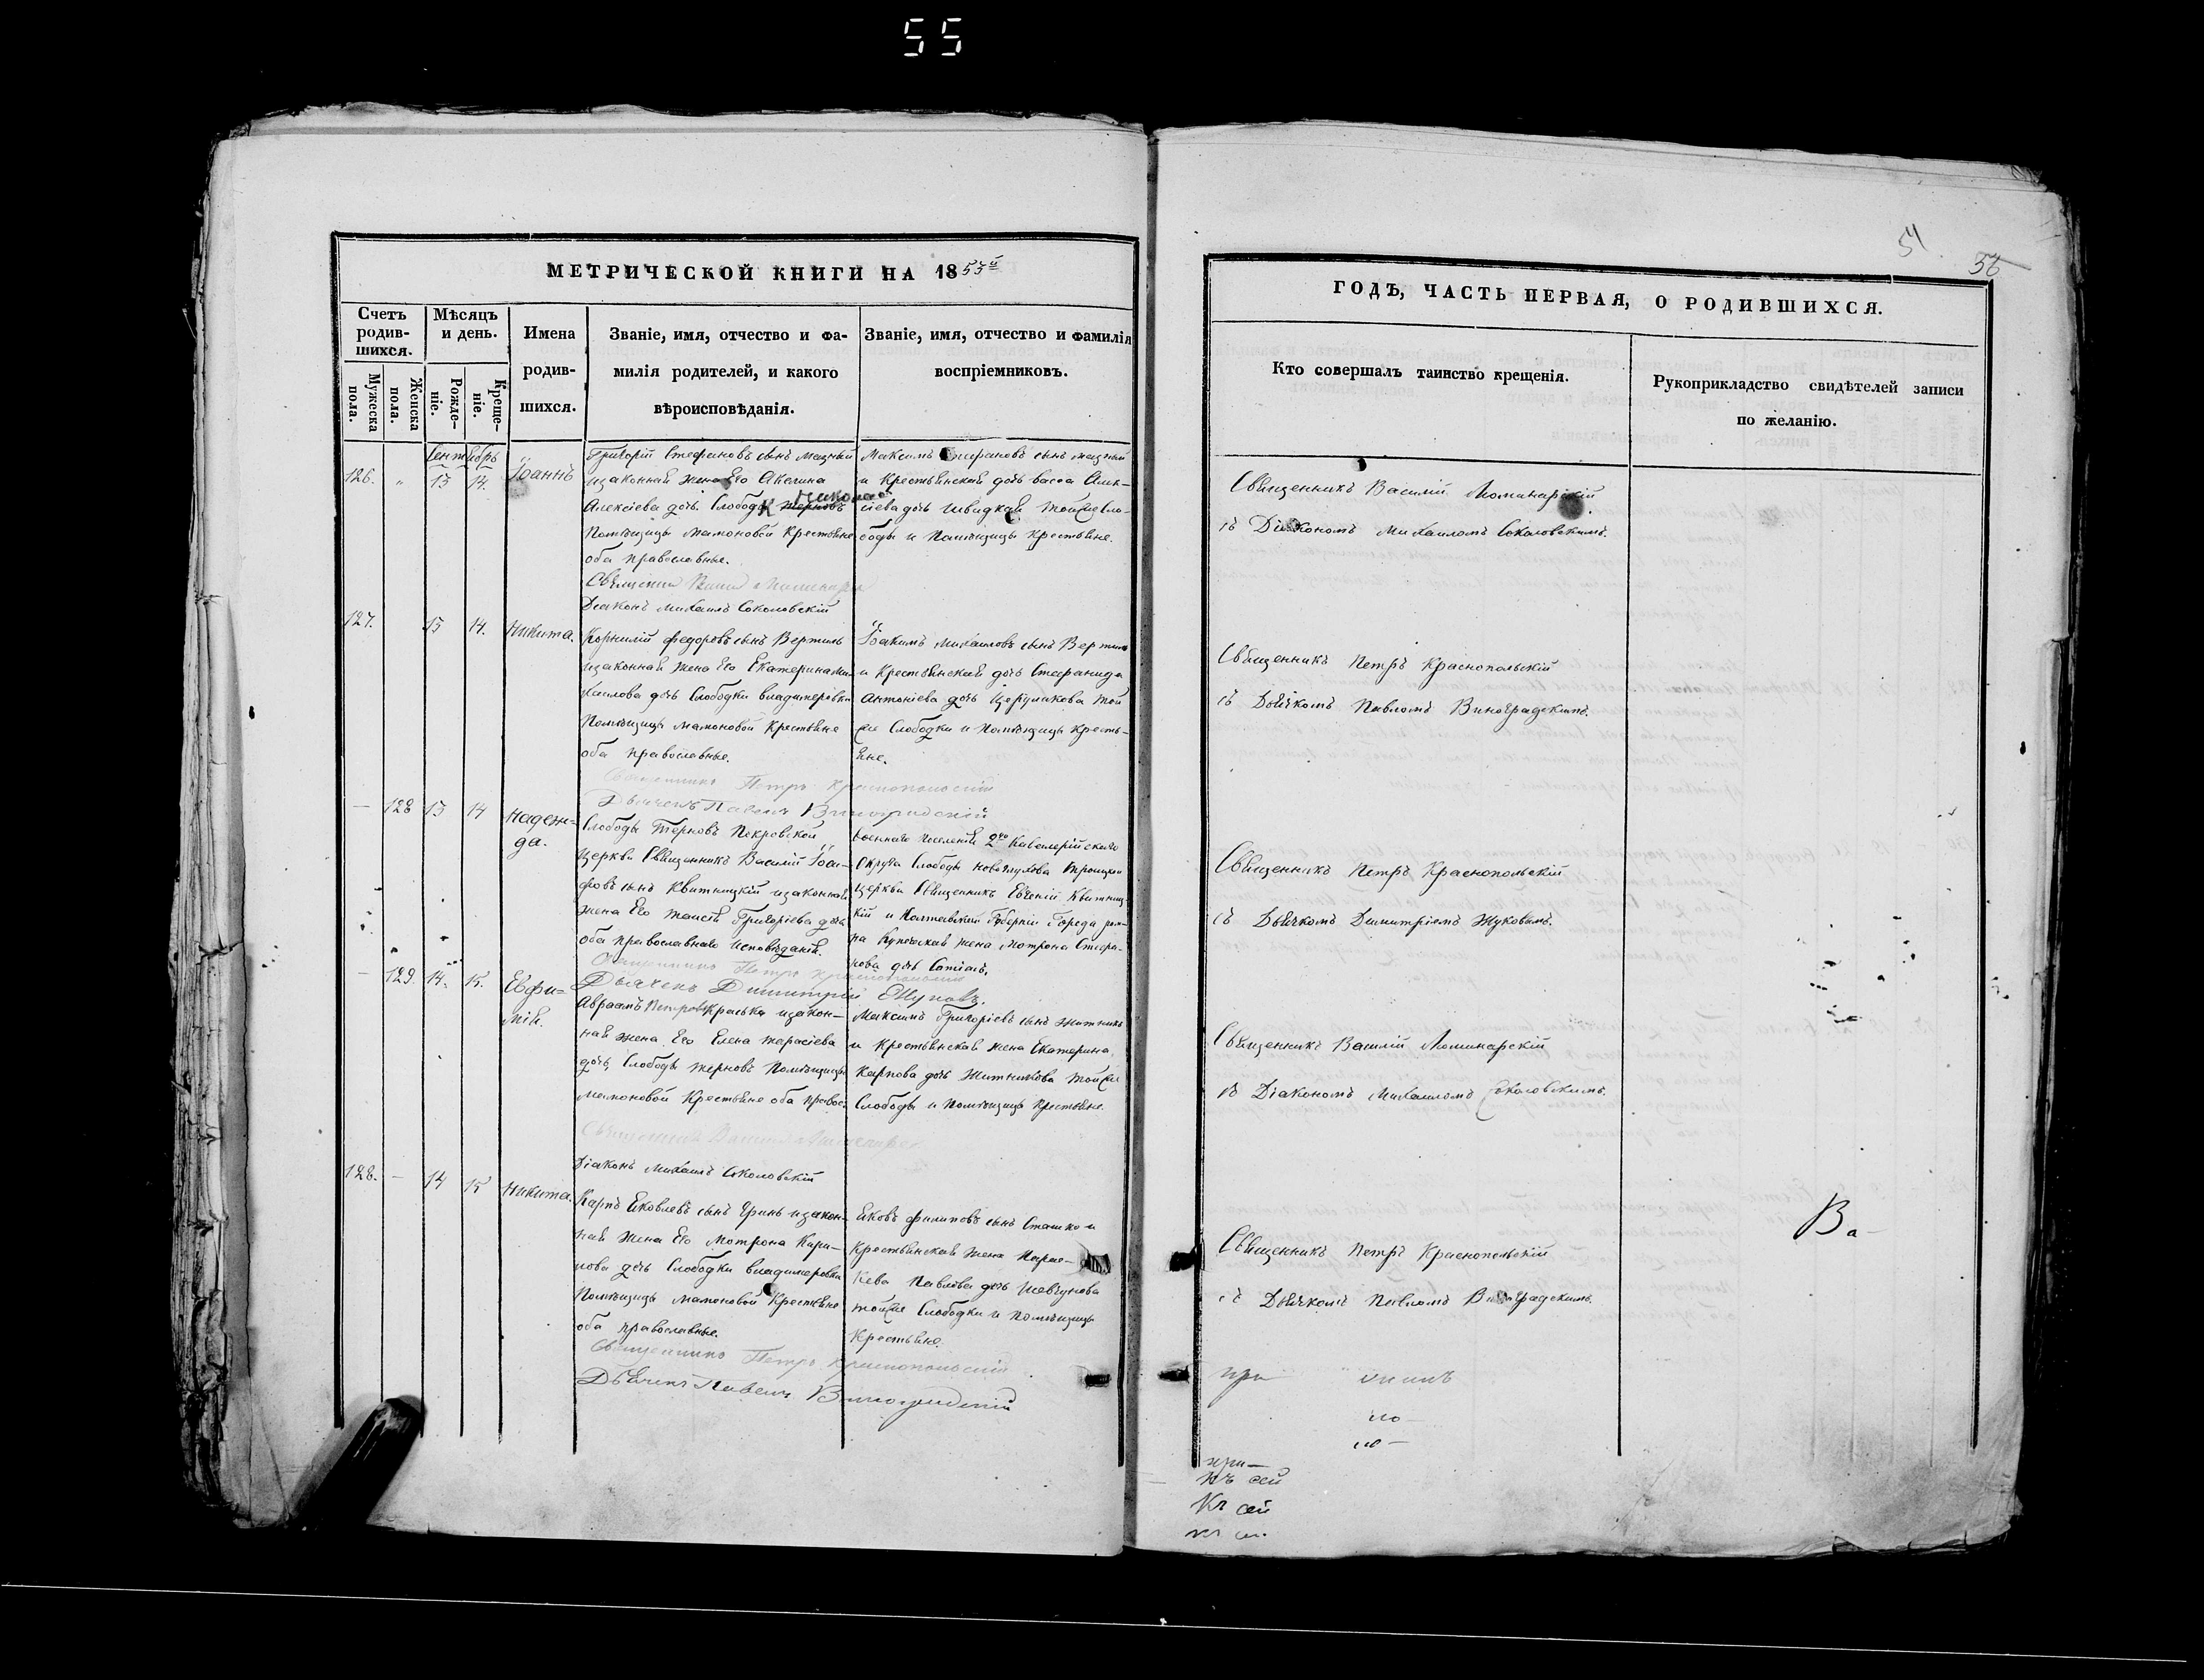 55
51
56
МЕТРИЧЕСКОЙ КНИГИ НА 1853й
Счетъ родив-шихся.
Мужеска пола.
Женска пола.
Мѣсяцъ и день.
Рожде-ніе.
Креще-ніе.
Имена родив-шихся.
Званіе, имя, отчество и фа-
милія родителей, и какого
вѣроисповѣданія.
Званіе, имя, отчество и фамилія
воспріемниковъ.
ГОДЪ, ЧАСТЬ ПЕРВАЯ, О РОДИВШИХСЯ.
Кто совершалъ таинство крещенія.
Рукоприкладство свидѣтелей записи
по желанію.
Сентябрь
126. " 13 14. Іоаннъ
Григорій Стефановъ сынъ
изаконная жена Его Акелина
Алексіева дочь Слободы Терновъ
Помѣщицы Мамоновой Крестьяне
оба православные.
Діаконъ Михаилъ Соколовскій
Максимъ Стефановъ сынъ
и Крестьянская дочь Васса Алек-
сіева дочь Швидкая тойже Сло-
боды и Помѣщицы Крестьяне.
Священникъ Василій
съ Діакономъ Михаиломъ Соколовскимъ.
127. 13 14. Никита.
Корнилій Федоровъ сынъ Вертиль
изаконная жена Его Екатерина Ми-
хаилова дочь Слободки Владимеровки
Помѣщицы Мамоновой Крестьяне
оба православные.
Священникъ Петръ Краснопольскій
Дьячекъ Павелъ Виноградскій
Іоакимъ Михаиловъ сынъ Вертиль
и Крестьянская дочь Стефанида
Антоніева дочь той
же Слободки и Помѣщицы Кресть-
яне.
Священникъ Петръ Краснопольскій
съ Дьячкомъ Павломъ Виноградскимъ.
— 128 13 14 Надеж-
да.
Слободы Терновъ Покровской
Церкви Священникъ Василій Іоси-
фовъ сынъ Квитницкій изаконная
жена Его Таисія Григоріева дочь
оба православнаго исповѣданія.
Священникъ Петръ Краснопольскій
Дьячекъ Димитрій Жуковъ.
Военнаго Поселенія 2го Кавалерійскаго
Округа Слободы Новоглухова Троицкой
Церкви Священникъ Евгеній Квитниц-
кій и Полтавской Губерніи Города Ром-
на Купеческая жена Мотрона Стефа-
нова дочь
Священникъ Петръ Краснопольскій
съ Дьячкомъ Димитріемъ Жуковымъ.
— 129. 14. 15. Евфи-
мія.
Авраамъ Петровъ изакон-
ная жена Его Елена Тарасіева
дочь Слободы Терновъ Помѣщицы
Мамоновой Крестьяне оба правос.
Діаконъ Михаилъ Соколовскій
Максимъ Григоріевъ сынъ Житникъ
и Крестьянская жена Екатерина
Карпова дочь Житникова тойже
Слободы и Помѣщицы Крестьяне.
Священникъ Василій
съ Діакономъ Михаиломъ Соколовскимъ.
128. — 14 15 Никита.
Карпъ Яковлевъ сынъ изакон-
ная жена Его Мотрона Кари-
нова дочь Слободки Владимеровки
Помѣщицы Мамоновой Крестьяне
оба православные.
Священникъ Петръ Краснопольскій
Дьячекъ Павелъ Виноградскій
Яковъ Филиповъ сынъ Сташко и
Крестьянская жена Парас-
кева Павлова дочь Шевчукова
тойже Слободки и Помѣщицы
Крестьяне.
Священникъ Петръ Краснопольскій
съ Дьячкомъ Павломъ Виноградскимъ.
Ва-
къ сей
Къ сей